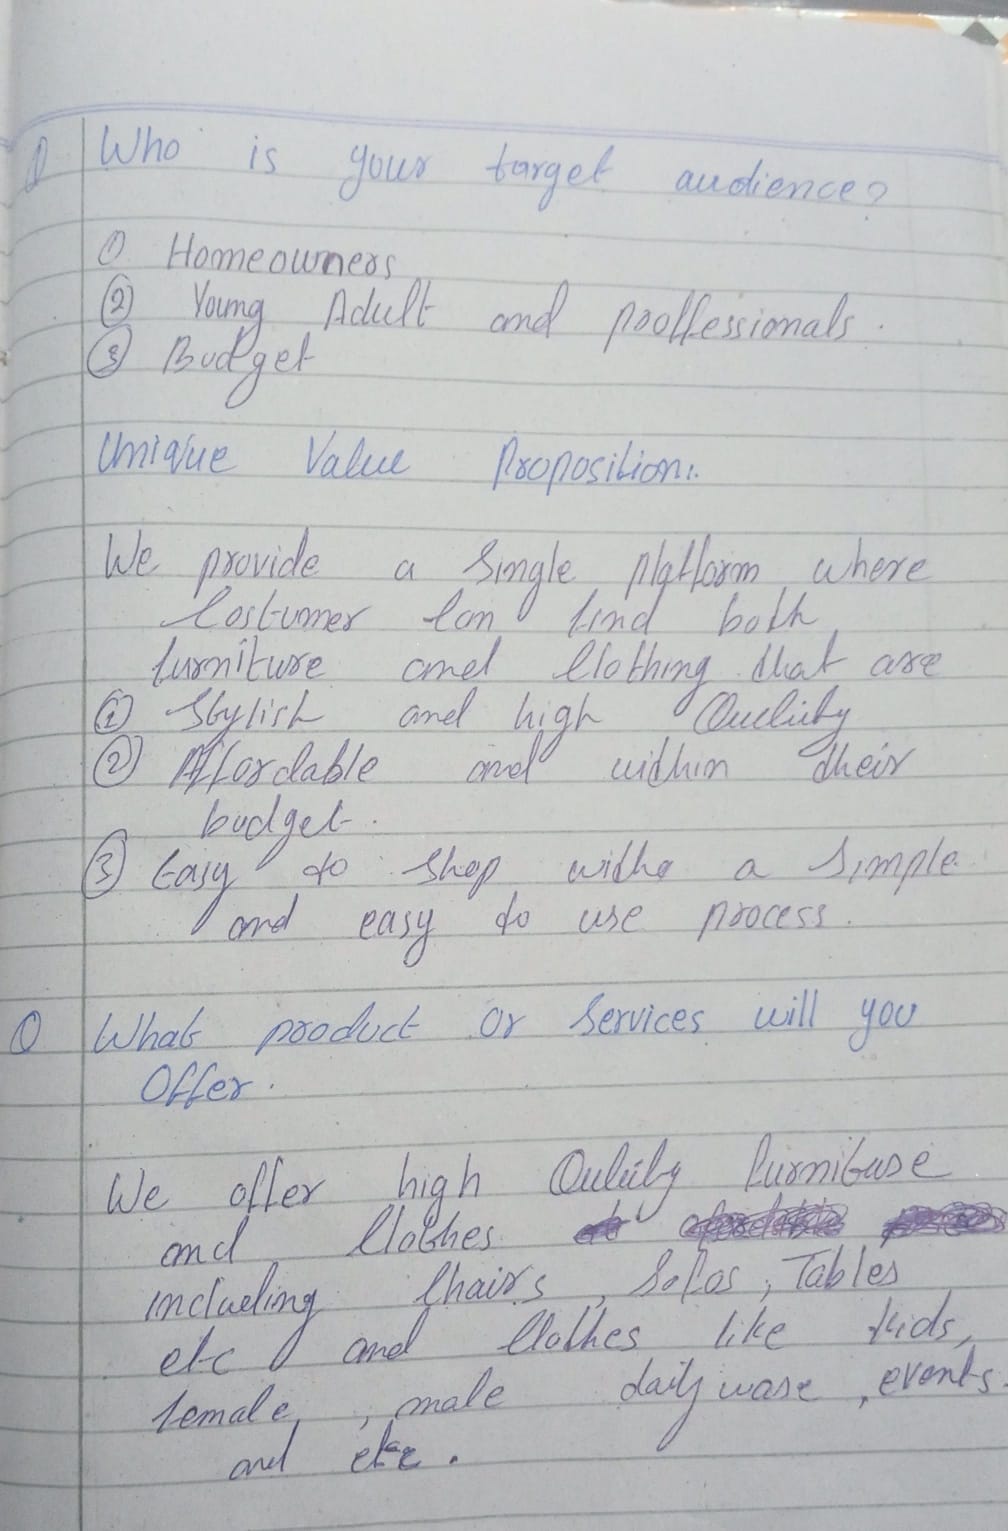 Q Who is your target audience?
① Homeowners
② Young Adult and proffessionals.
③ Budget
Unique Value Proposition:.
We provide a Single platform where
Costumer Can find both
furniture and Clothing that are
① Stylish and high Quality
② Affordable and within their
budget.
③ Easy to Shop withe a Simple
and easy to use process.
Q What product or Services will you
Offer.
We offer high Quluity furniture
and Clothes
including Chairs, Sofas, Tables
etc and Clothes like kids,
female, male daily ware, events.
and etc.